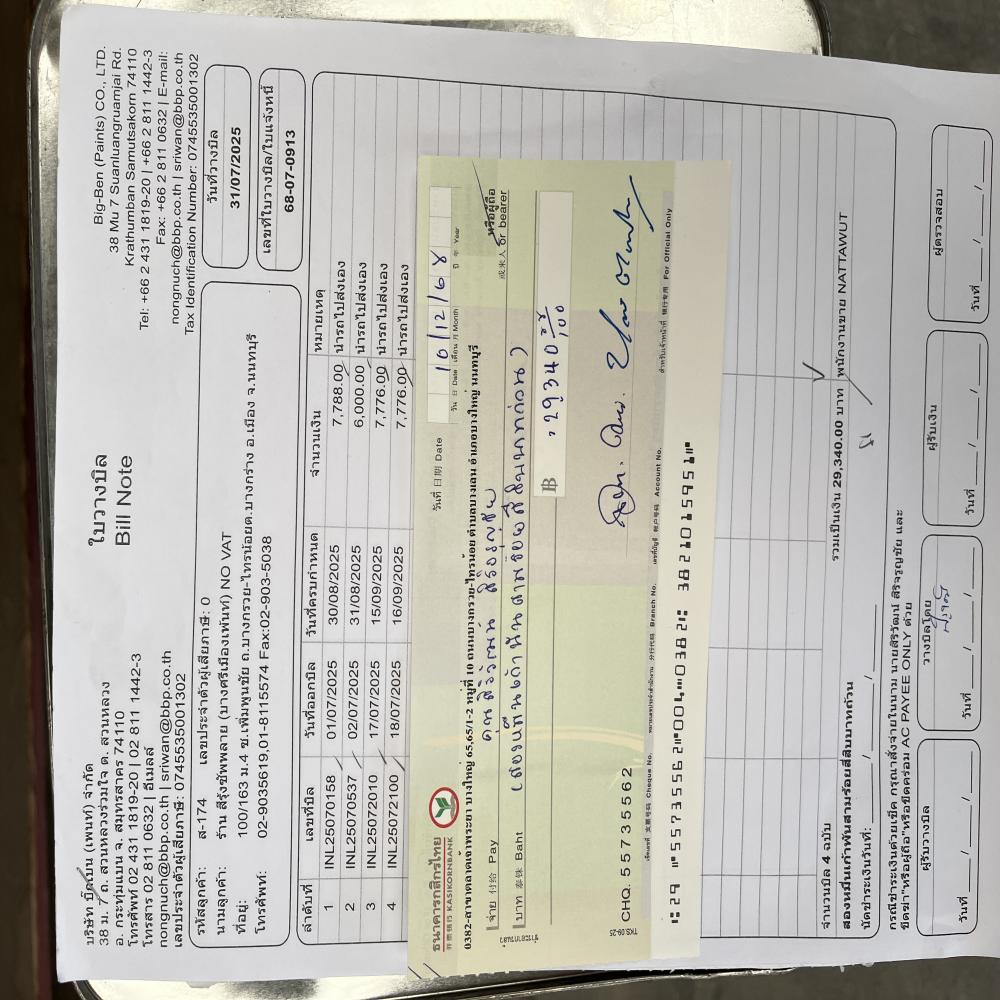 บริษัท บิ๊กเบ็น (เพนท์) จำกัด
38 ม. 7 ถ. สวนหลวงร่วมใจ ต. สวนหลวง
อ. กระทุ่มแบน จ. สมุทรสาคร 74110
โทรศัพท์ 02 431 1819-20 | 02 811 1442-3
โทรสาร 02 811 0632 | อีเมลล์
nongnuch@bbp.co.th | sriwan@bbp.co.th
เลขประจำตัวผู้เสียภาษี: 0745535001302
ใบวางบิล
Bill Note
Big-Ben (Paints) CO., LTD.
38 Mu 7 Suanluangruamjai Rd.
Krathumban Samutsakorn 74110
Tel: +66 2 431 1819-20 | +66 2 811 1442-3
Fax: +66 2 811 0632 | E-mail:
nongnuch@bbp.co.th | sriwan@bbp.co.th
Tax Identification Number: 0745535001302
รหัสลูกค้า: ส-174 เลขประจำตัวผู้เสียภาษี: 0
นามลูกค้า: ร้าน สีรุ้งซัพพลาย (บางศรีเมืองเพ้นท์) NO VAT
ที่อยู่: 100/163 ม.4 ซ.เพิ่มพูนชัย ถ.บางกรวย-ไทรน้อยต.บางกร่าง อ.เมือง จ.นนทบุรี
โทรศัพท์: 02-9035619,01-8115574 Fax:02-903-5038
วันที่วางบิล
31/07/2025
เลขที่ใบวางบิล/ใบแจ้งหนี้
68-07-0913
ลำดับที่ เลขที่บิล วันที่ออกบิล วันที่ครบกำหนด จำนวนเงิน หมายเหตุ
1 INL25070158 01/07/2025 30/08/2025 7,788.00 นำรถไปส่งเอง
2 INL25070537 02/07/2025 31/08/2025 6,000.00 นำรถไปส่งเอง
3 INL25072010 17/07/2025 15/09/2025 7,776.00 นำรถไปส่งเอง
4 INL25072100 18/07/2025 16/09/2025 7,776.00 นำรถไปส่งเอง
ธนาคารกสิกรไทย
开泰银行 KASIKORNBANK
วันที่ 日期 Date 10/12/68
วัน 日 Date เดือน 月 Month ปี 年 Year
0382-สาขาตลาดเจ้าพระยา บางใหญ่ 65,65/1-2 หมู่ที่ 10 ถนนบางกรวย-ไทรน้อย ตำบลบางเลน อำเภอบางใหญ่ นนทบุรี
จ่าย 付给 Pay คุณสิริวัฒน์ สิริจรูญชัย หรือผู้ถือ
或来人 or bearer
บาท 泰铢 Baht (สองหมื่นเก้าพันสามร้อยสี่สิบบาทถ้วน)
฿ 29340.00
CHQ. 55735562
เช็คเลขที่ 支票号码 Cheque No. หมายเลขประจำสำนักงาน 分行代码 Branch No. เลขที่บัญชี 账户号码 Account No. สำหรับเจ้าหน้าที่ 银行专用 For Official Only
TKS.09-25
จำนวนบิล 4 ฉบับ รวมเป็นเงิน 29,340.00 บาท พนักงานขาย NATTAWUT
สองหมื่นเก้าพันสามร้อยสี่สิบบาทถ้วน
นัดชำระเงินวันที่: / /
กรณีชำระเงินด้วยเช็ค กรุณาสั่งจ่ายในนาม นายสิริวัฒน์ สิริจรูญชัย และ
ขีดฆ่า"หรือผู้ถือ"หรือขีดคร่อม AC PAYEE ONLY ด้วย
ผู้รับวางบิล วางบิลโดย ผู้รับเงิน ผู้ตรวจสอบ
วันที่ / / วันที่ / / วันที่ / / วันที่ / /